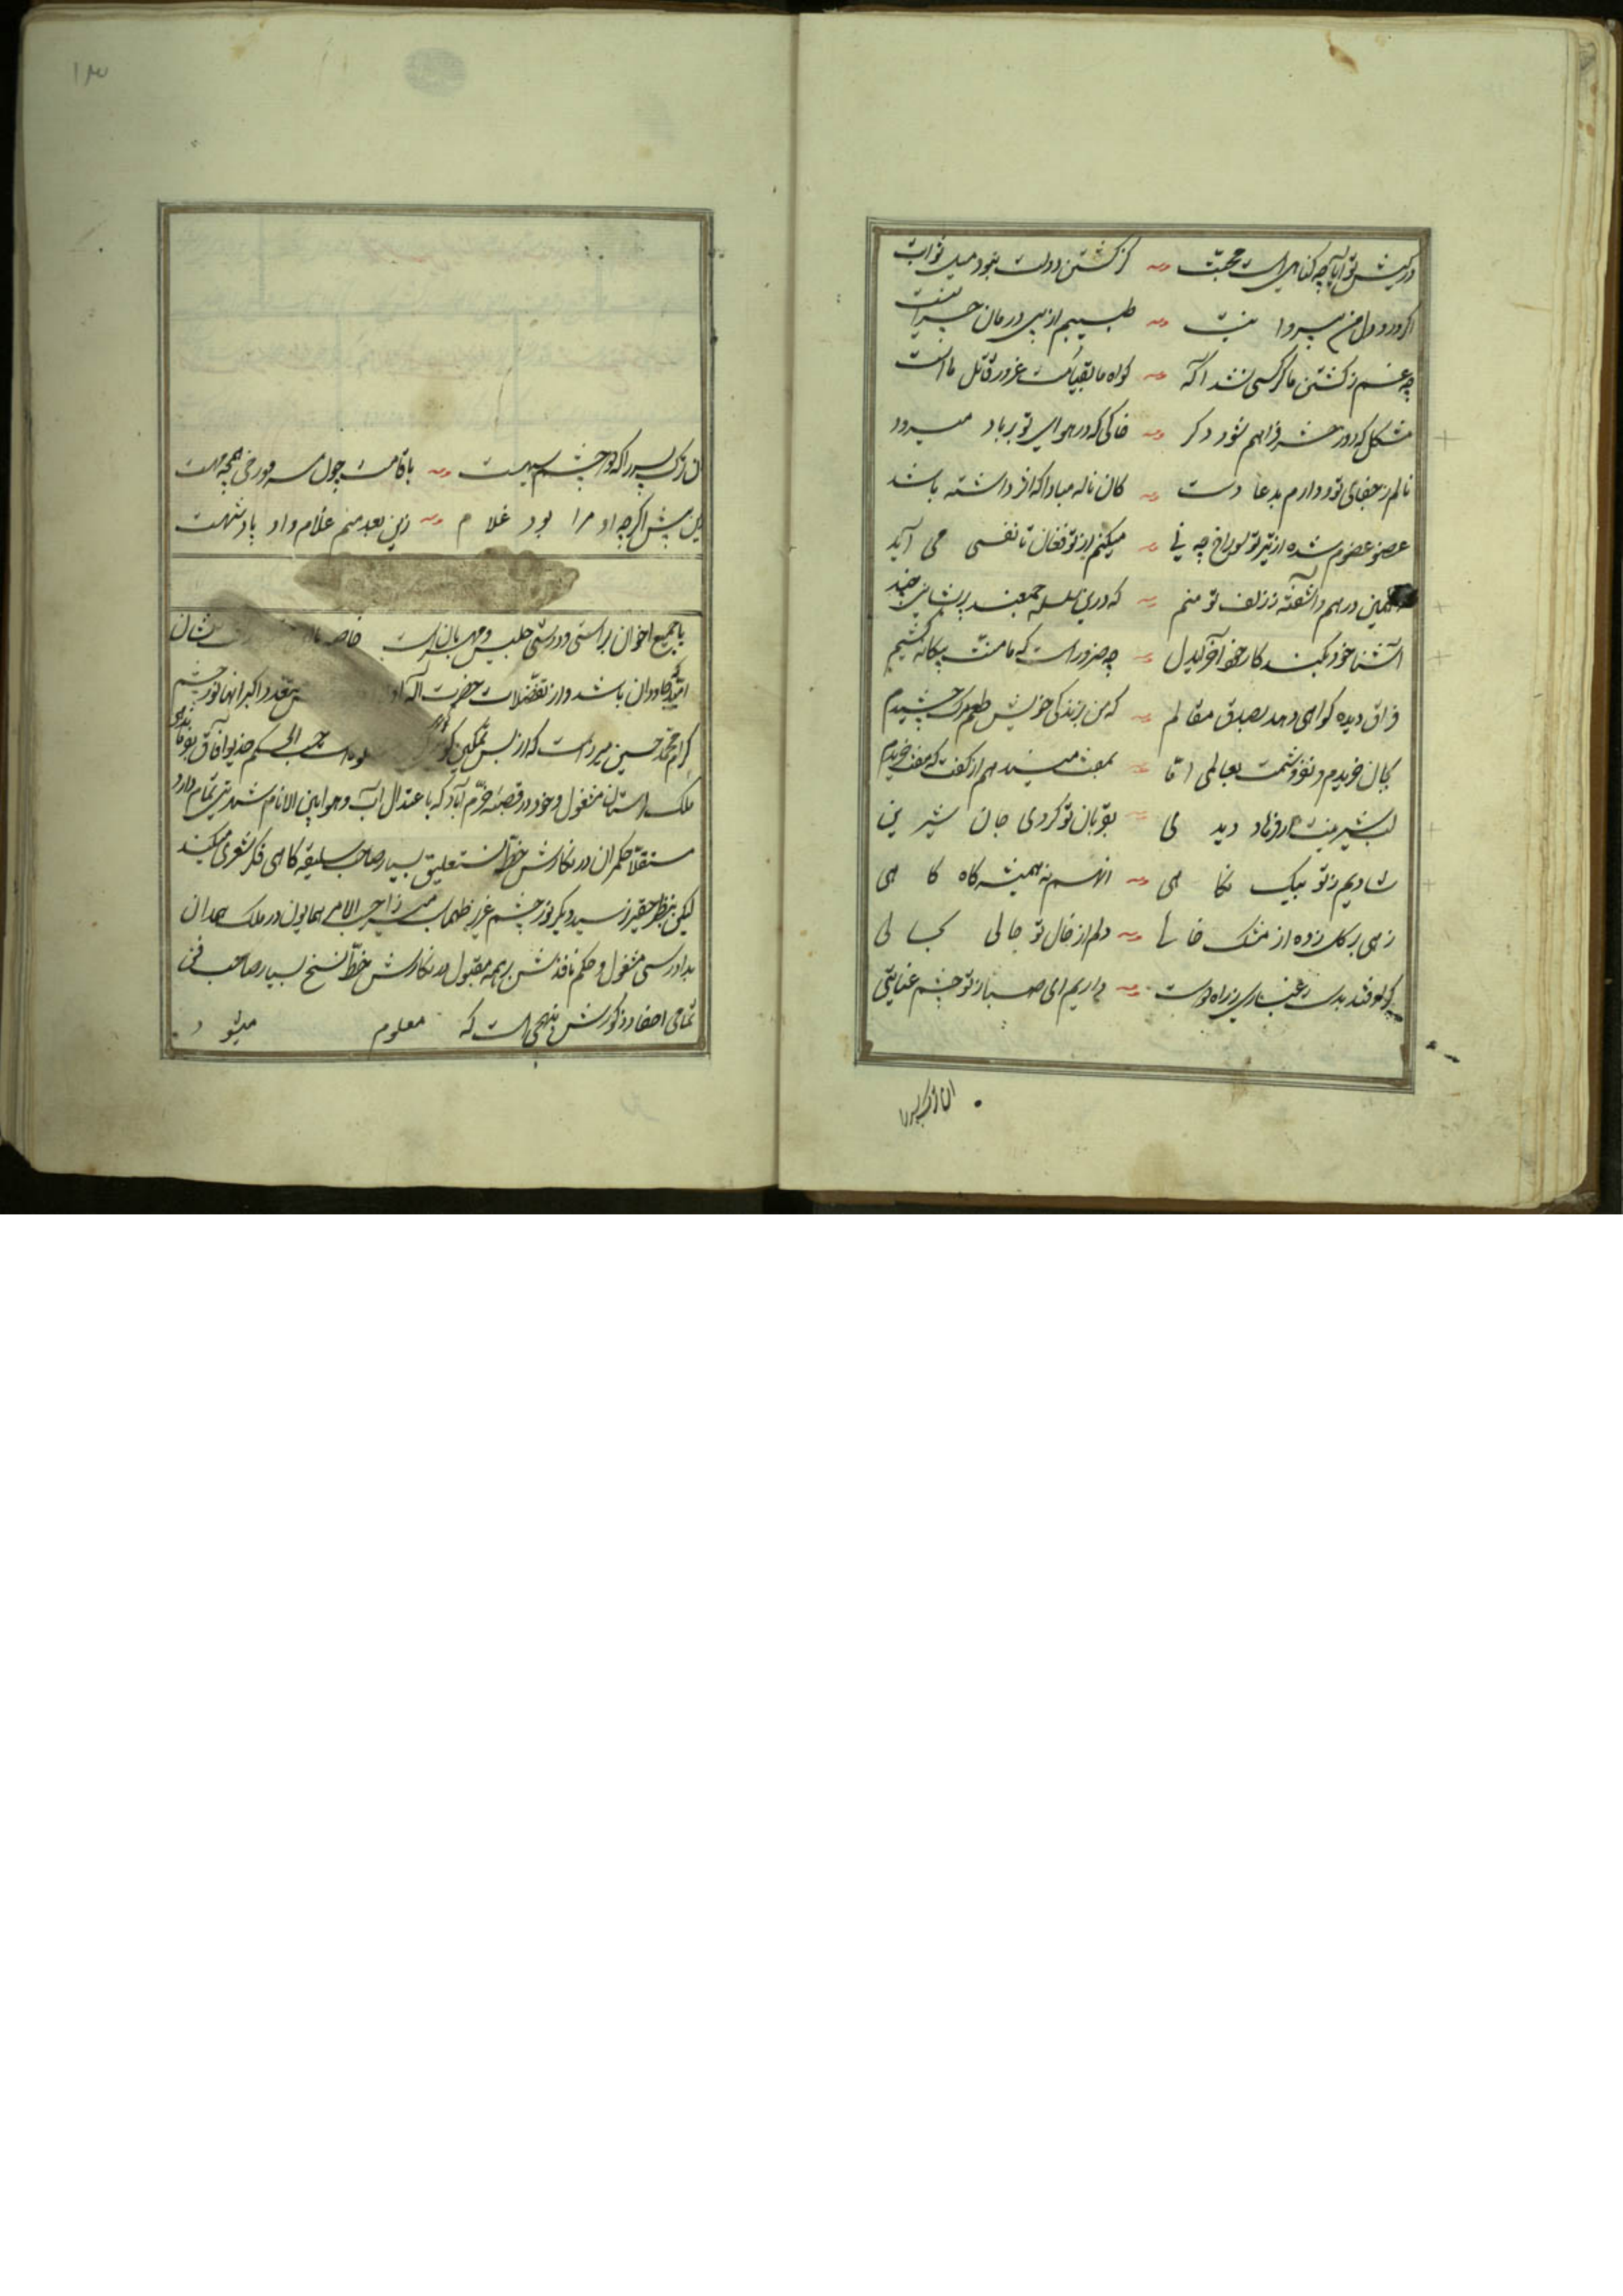 در کیش تو آیا چه گناهی است محبت کز کشتن دولت نبود میل ثوابت
اگر درد دل من بی‌دوا نیست طبیبم از پی درمان چرا نیست
چه غم ز کشتن ما گر کسی نشد آگه گواه ما بقیامت غرور قاتل ما است
مشکل که روز حشر فراهم شود دگر خاکی که در هوای تو بر باد میرود
نالم ز جفای تو و دارم بدعا دست کان ناله مبادا که اثر داشته باشد
عضو عضوم شده از تیر تو سوراخ چه نی میکنم از تو فغان تا نفسی می آید
همین درهم و آشفته ز زلف تو منم که درین سلسله جمعند پریشانی چند
آشنا خود بکند کار خود آخر ایدل چه ضرور است که ما منت بیگانه کشیم
فراق دیده گواهی دهد بصدق مقالم که من بزندگی خویش طعم مرگ چشیدم
بجان خریدم و نفروشمت بعالمی اما بمفت میندهم از کفت که مفت خریدم
لب شیرینت ار فرهاد دید می بقربان تو کردی جان شیرین
شادیم ز تو بیک نگا هی آنهم نه همیشه گاه گا هی
زهی بر گل زده از مشک خالی دلم از خال تو حالی بحالی
گر اوفتد بدست غباری ز راه دوست داریم ای صبا ز تو چشم عنایتی
آن ترک پسر را که دو چشم سیهست با قامت چون سرو و رخی همچو مهست
زین پیش اگر چه او مرا بود غلام زین بعد منم غلام و او پادشهست
با جمیع اخوان براستی و درستی جلیس و مهربان است خاصه
امید که جاودان باشد و از تفضلات حضرت اله
کرام محمد حسین میرزا است که از بس تمکین حسب الحکم خدیو آفاق
ملک لرستان مشغول و خود در قصبه خرم آباد که با عتدال آب و هوا بین الانام شهرتی تمام دارد
مستقلا حکمران در نگارش خط نستعلیق بسیار صاحب سلیقه گاهی فکر شعری میکند
لیکن بنظر حقیر نرسید دیگر نور چشم عزیز طهماسب میرزا حسب الامر همایون در ملک همدان
بدادرسی مشغول و حکم نافذش بر همه مقبول در نگارش خط نسخ بسیار صاحب فن
تمامی احفاد ذکورش بنهجی است که معلوم میشود
آن ترک پسر را
۱۳